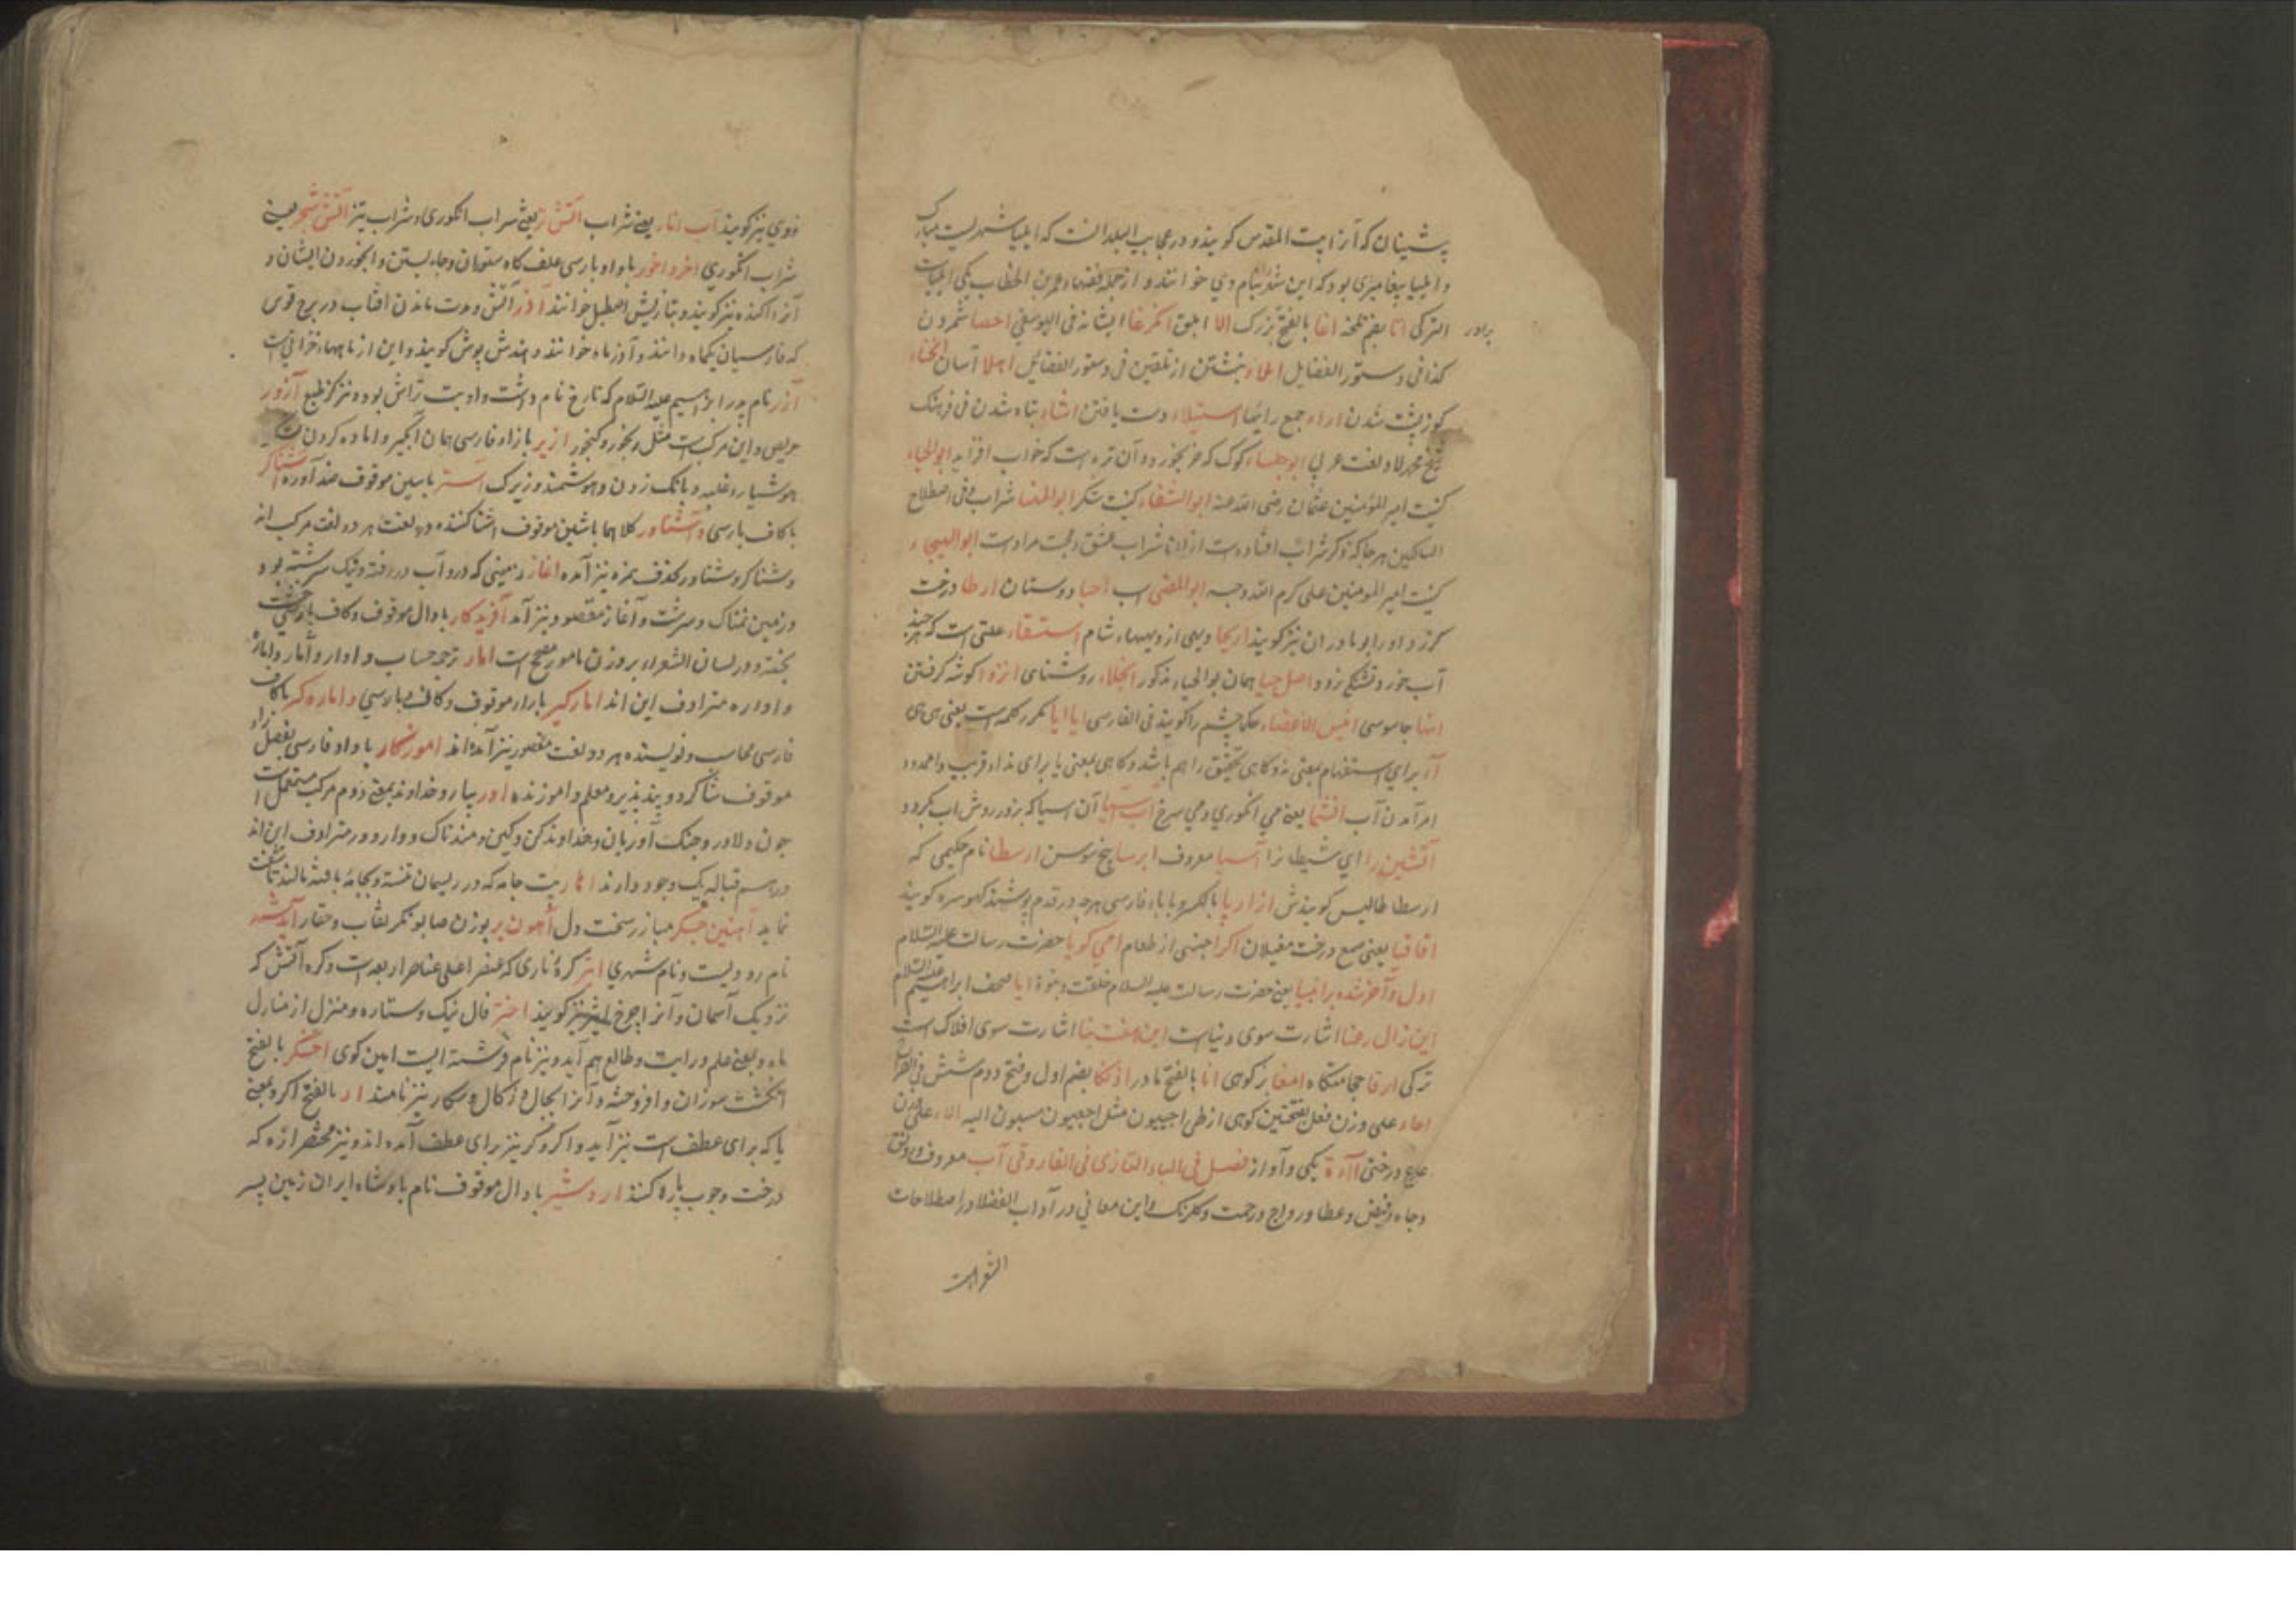 پیشینیان که آنرا بیت المقدس کویند و در عجایب البلدانست که ایلیا شهریست مبارک
و ایلیا پیغامبری بود که این شهر بنام وی خوانند و از جمله فقهاء عمر بن الخطاب یکی ایلیاست
الترکی اتا بضم تلخه اغا بالفتح بزرک الا ابلق ایشانه فی الیوسفی احصا شمردن
برادر
کذا فی دستور الفضایل املاء نبشتن از تلقین فی دستور الفضایل اهلا آسان انحناء
کوز پشت شدن اراء جمع رایها استیلاء دست یافتن تباه شدن فی فرهنک
شیخ محمد لاد لغت عربی کوک که خر بخورد و آن تره است که خواب افزاید ابو الحیاء
کنیت امیر المؤمنین عثمان رضی الله عنه ابو الشفاء کنیت شکر ابو المنسا شراب و فی اصطلاح
السالکین هر جا که ذکر شراب افتاده است از انا شراب عشق و محبت مراد است ابو الهیجاء
کنیت امیر المومنین علی کرم الله وجهه ابو المضی اسب احبا دوستان ارطا درخت
کرز و او را بو مادران نیز کویند اریحا دیهی از دیههاء شام استسقاء علتی است که هر چند
آب خورد تشنکی نرود اصل حیا همان بو الحیاء مذکور انجلاء روشنای انزوا کوشه کرفتن
انها جاسوسی انیس الاعضاء حکما چشم را کویند فی الفارسی ایا ایا مکرر کلمه است یعنی هی هی
آ برای استفهام بمعنی نه و کاهی تحقیق را هم باشد و کاهی بمعنی یا برای نداء قریب و اممدود
امر آمدن آب افشا یعنی می انکوری و می سرخ اب آسیا آن اسیا که بزور روش اب کردد
آتشین را ای شیطان را آسیا معروف ابرسا بیخ سوسن ارسطا نام حکیمی که
ارسطا طالیس کویندش ازار پا بالکسر و با باء فارسی هر چه در قدم پوشند کویند
اقاقیا یعنی صمع درخت مغیلان اکرا جنسی از طعام امی کویا حضرت رسالت علیه السلام
اول و آخر شده بر انبیا یعنی حضرت رسالت علیه السلام خلقت و نبوة ایا صحف ابراهیم علیه السلام
این زال رعنا اشارت سوی دنیاست این هفت بنا اشارت سوی افلاک است
ترکی ارقا حجامتکاه امغا بز کوهی انا بالفتح مادر بضم اول و فتح دوم شش فی القراخ
اجاء علی وزن فعل بفتحتین کوهی از طی اجییون مثل اجعیون منسبون الیه الاء علی وزن
علاع درختی آآءة یکی و آواز فصل فی الباء التازی فی الفاروقی آب معروف و رونق
و جاه و فیض و عطا و رواج و رحمت و کلرنک و این معانی در آداب الفضلا در اصطلاحات
الشعراست
دوی نیز کویند آب انار یعنی شراب آتش تر یعنی شراب انکوری و شراب تیز آتش شجر یعنی
شراب انکوری اخر و اخور با واو پارسی علف کاه ستوران و جاء بستن و ایخوردن ایشان و
آنرا اکنده نیز کویند و بتازیش اصطبل خوانند آذر آتش و مدت ماندن افتاب در برج قوس
که فارسیان یکماه دانند و آذر ماه خوانند و هندش پوس کویند و این از ماهها خزانیست
آزر نام پدر ابراهیم علیه السلام که تارخ نام داشت و او بت تراش بود و نیز کژ طبع آزور
حریص و این مرکب است مثل رنجور و کنجور اژیر با زاء فارسی همان آبکیر و اماده کردن
هوشیار و غلبه و بانک زدن و هوشمند و زیرک آستر با سین موقوف ضد آوره آشناکر
با کاف پارسی و آشناور کلاهما با شین موقوف اشنا کننده و در لغت هر دو لغت مرکب اند
و شناکر و شناور بحذف همزه نیز آمده اغار زمینی که درو آب در رفته و نیک سرشته بود
و زمین نمناک و سرشت و آغار مقصود نیز آمد آفریدکار با دال موقوف و کاف پارسی
پخته و در لسان الشعراء بر وزن نامور مصحح است امار ترجمه حساب و اوار و آمار و اماره
و اواره مترادف این اند امارکیر با راء موقوف و کاف پارسی و اماره کر با کاف
فارسی محاسب و نویسنده هر دو لغت مقصور نیز آمده اند اموزکار با واو فارسی و زاء
موقوف شاکرد و پند پذیر و معلم و اموزنده اور بیار و خداوند بمعنی دوم مرکب مستعمل است
چون دلاور و جنک آور بان و خداوند کن و کین و مند ناک و وار و ور مترادف این اند
در اسم قباله یک وجود دارند اهار جامه که در ریسمان و بجامه بافته مالند تا سخت
نماید آهنین جکر مبارز سخت دل آهون بر بوزن صابونکر نقاب و حفار
نام رودیست و نام شهری اثیر کرهٔ ناری که عنصر اعلی عناصر اربعه است و کره آتش که
نزدیک آسمان و آنرا چرخ اثیر نیز کویند اختر فال نیک و ستاره و منزل از منازل
ماه و بمعنی علم و رایت و طالع هم آید و نیز نام فرشته ایست امین کوی اخکر بالفتح
انکشت سوزان و افروخته و آنرا نیز نامند ار بالفتح اکر و بمعنی
یا که برای عطف است نیز آید و اکر و کر نیز برای عطف آمده اند و نیز مختصر اره که
درخت و چوب پاره کنند اردشیر با دال موقوف نام پادشاه ایران زمین پسر